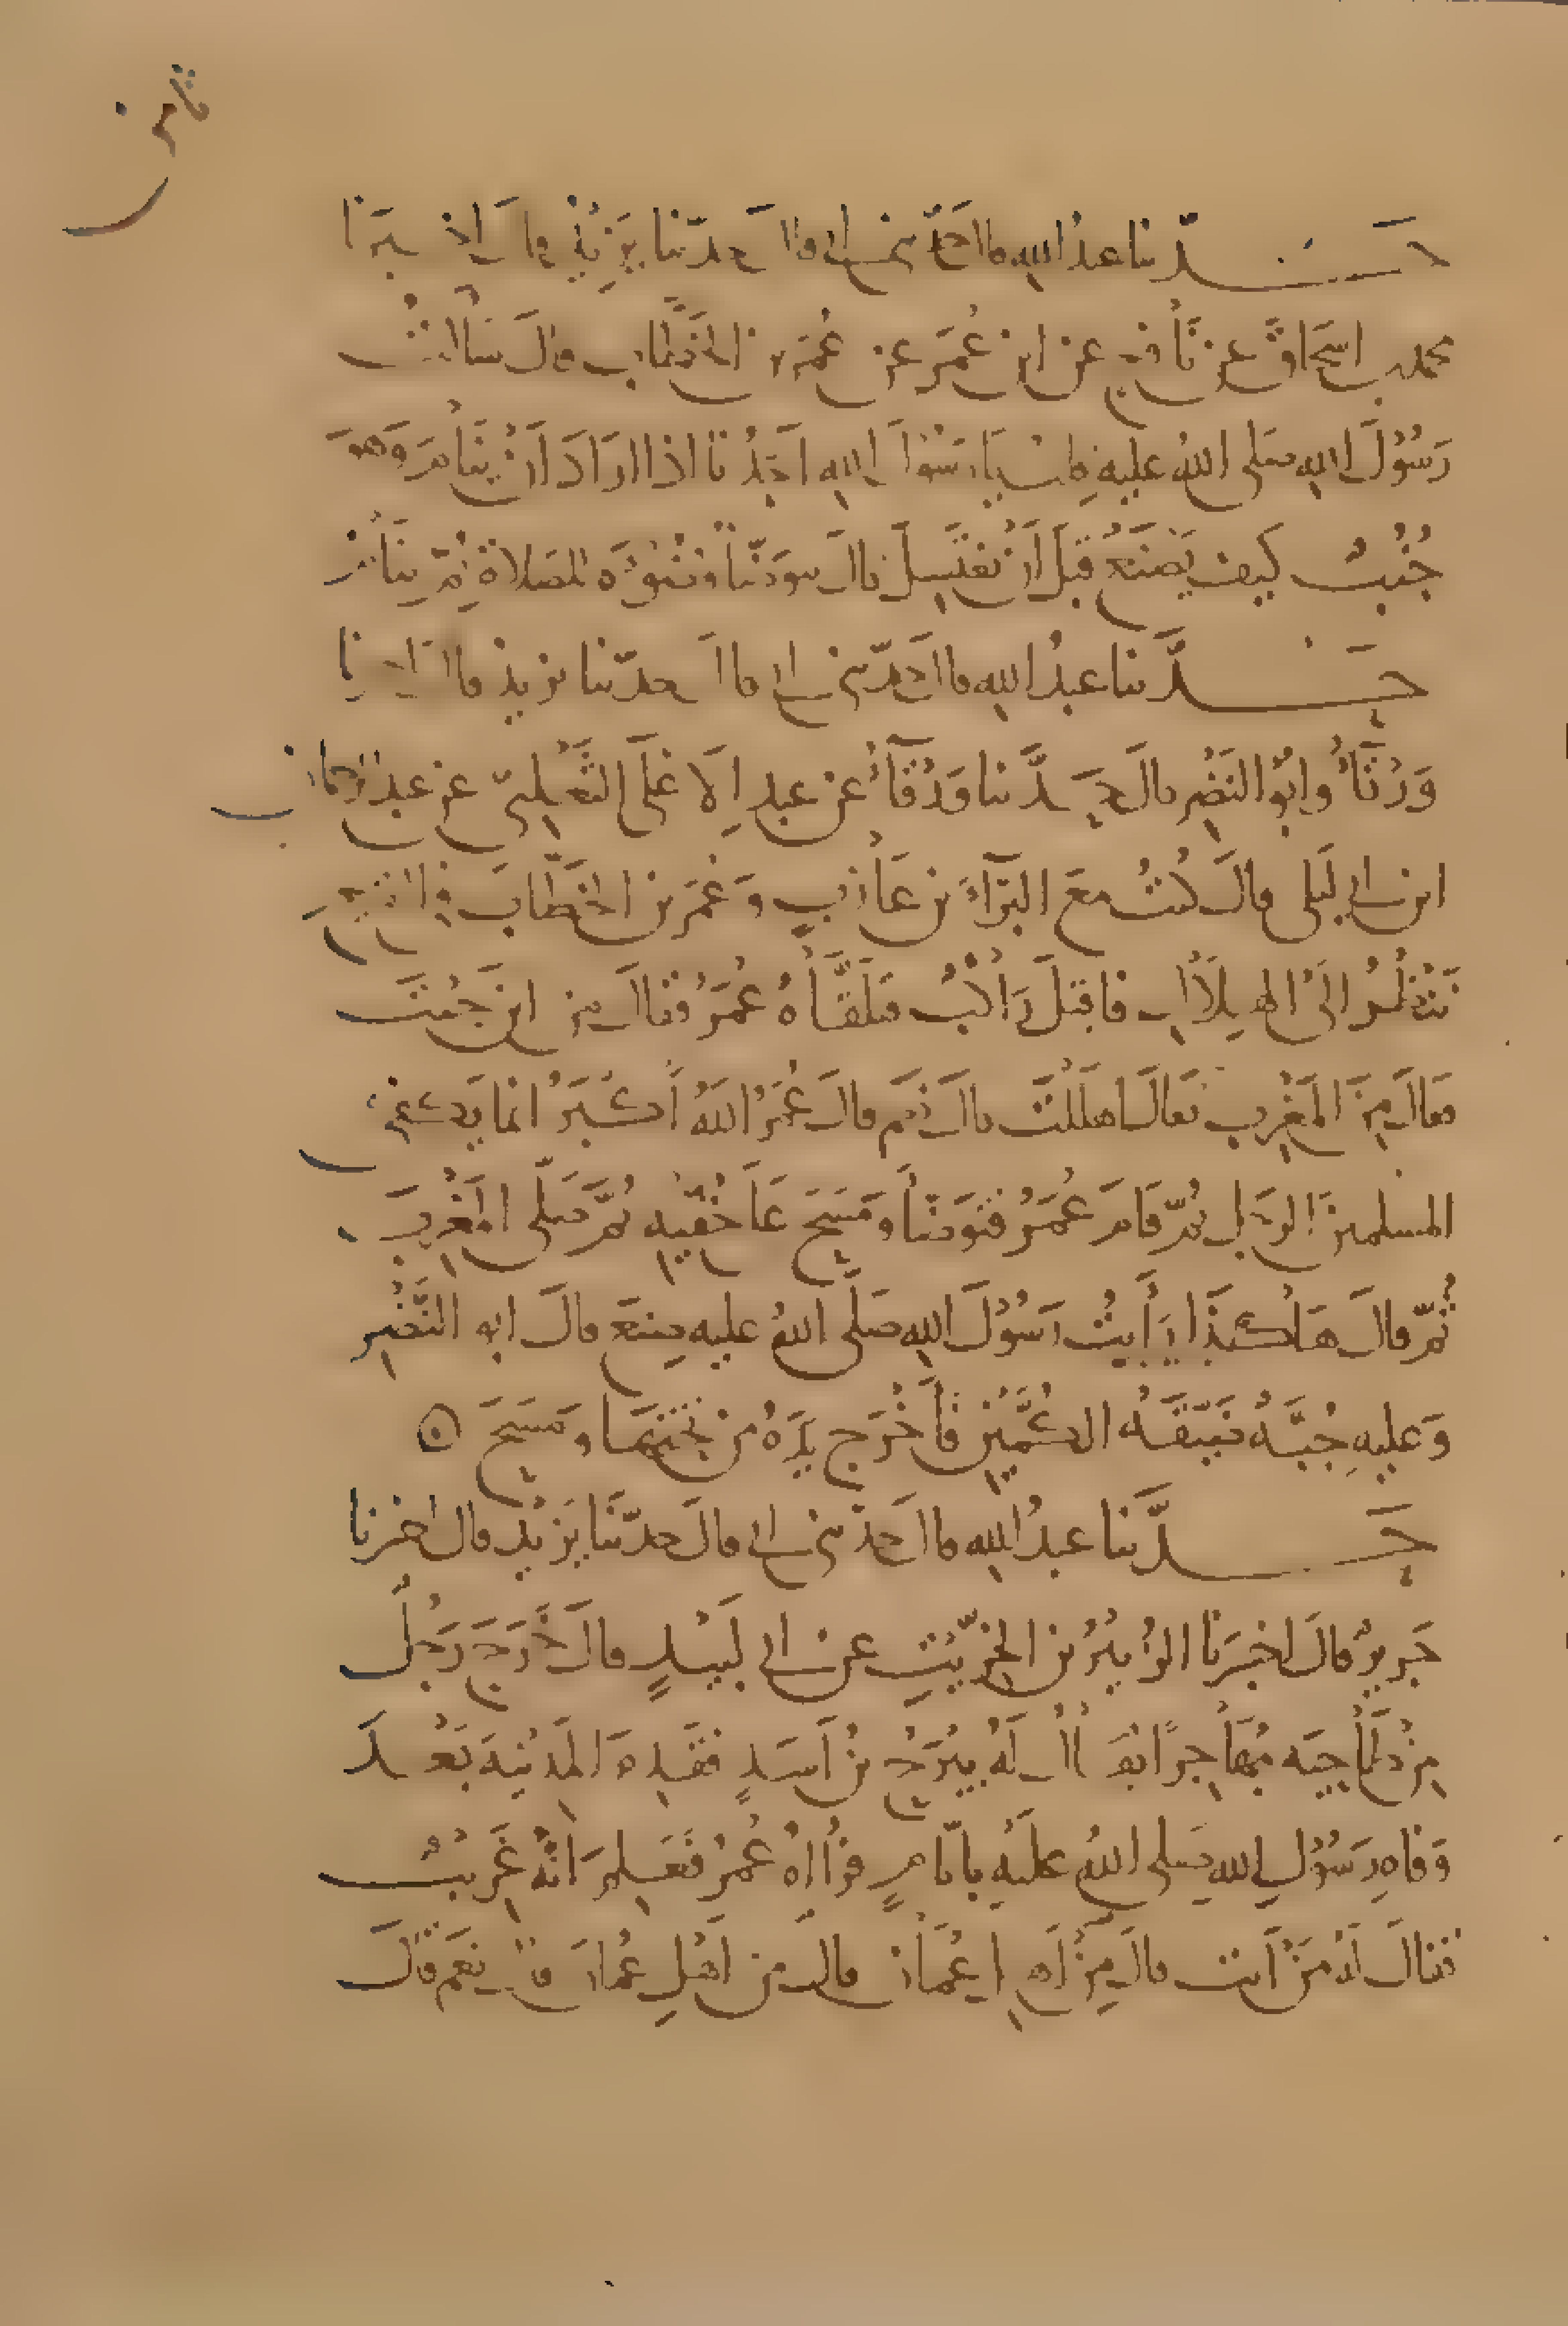 ثامن
حَدَّثنا عبدُ الله قال حَدَّثني أبي قال حدّثنا يَزِيدُ قال أخبَرَنا
محمد بن اسحَاقَ عن نَافِعٍ عن ابن عُمَرَ عن عُمَرَ بن الخَطَّاب قال سَأَلْتُ
رَسُوْلَ الله صَلى اللهُ عليهِ كيف يَا رَسُوْلَ الله أَحَدُنا اذا ارَادَ أَنْ يَنَامَ وَهوَ
جُنُبٌ كيف يَصْنَعُ قبلَ أَنْ يَغتَسِلَ قالَ يتوَضّأ وضُوْءَه للصَلاةِ ثمّ يَنَامُ
حَدَّثنا عبدُ الله قال حَدّثني أبي قال حدّثنا يزيدُ قال انا
وَرْقَاءُ وابُو النَضْرِ قالَ حَدَّثنا وَرْقَاءُ عن عبدِ الأعْلَى الثَعْلبيّ عن عبد الرحمان
ابن أبي ليَلى قالَ كُنتُ معَ البَرَآءِ بن عَازبٍ وَعُمَرَ بن الخَطَّابَ في البَقيعِ
نَنْظُرُ الىَ الهِلَالِ فاقبَلَ رَاكبٌ فتلَقَّاهُ عُمَرُ فقالَ من اينَ جِئتَ
فقالَ مِنَ المَغْرِبِ فقالَ اهلَلتَ قالَ نَعم قالَ عُمَرُ اللهُ أكبَرُ انما يَكفي
المسلمينَ الرَجل ثمّ قَامَ عُمَرُ فتَوَضّأ ومَسَحَ عَلَى خُفّيهِ ثمَّ صَلّى المَغْرِبَ
ثُمّ قالَ هَاكذَا رَأَيتُ رَسُوْلَ الله صَلّى اللهُ عليه صنعَ قالَ ابو النَّضْرِ
وَعليهِ جُبَّةٌ ضَيّقَةُ الكُمَّيْنِ فَأَخْرَجَ يَدَهُ من تَحْتِهَا ومَسَحَ
حَدَّثنا عبدُ الله قال حدّثني أبي قالَ حدّثَنا يَزيْد قال اخبرنا
جَريرٌ قالَ اخبَرَنا الزُبَيْرُ بن الخِرّيْتِ عن أبي لَبيْدٍ قالَ خَرَجَ رَجُلٌ
مِنْ طَاحِيَه مُهَاجِرًا يُقَالُ لَهُ بَيْرَحُ بنُ أَسَدٍ فقَدِمَ المَدْيْنةَ بَعْدَ
وَفاهِ رَسُوْلِ الله صَلى اللهُ علَيْه بأيّامٍ فرَاهُ عُمرُ فَعَلِمَ اَنّهُ غَريْبٌ
فقالَ لَهُ مَنْ اَنت قالَ مِنْ اَهلِ عُمَان قالَ من اَهْلِ عُمانَ قالَ نَعَم قَالَ